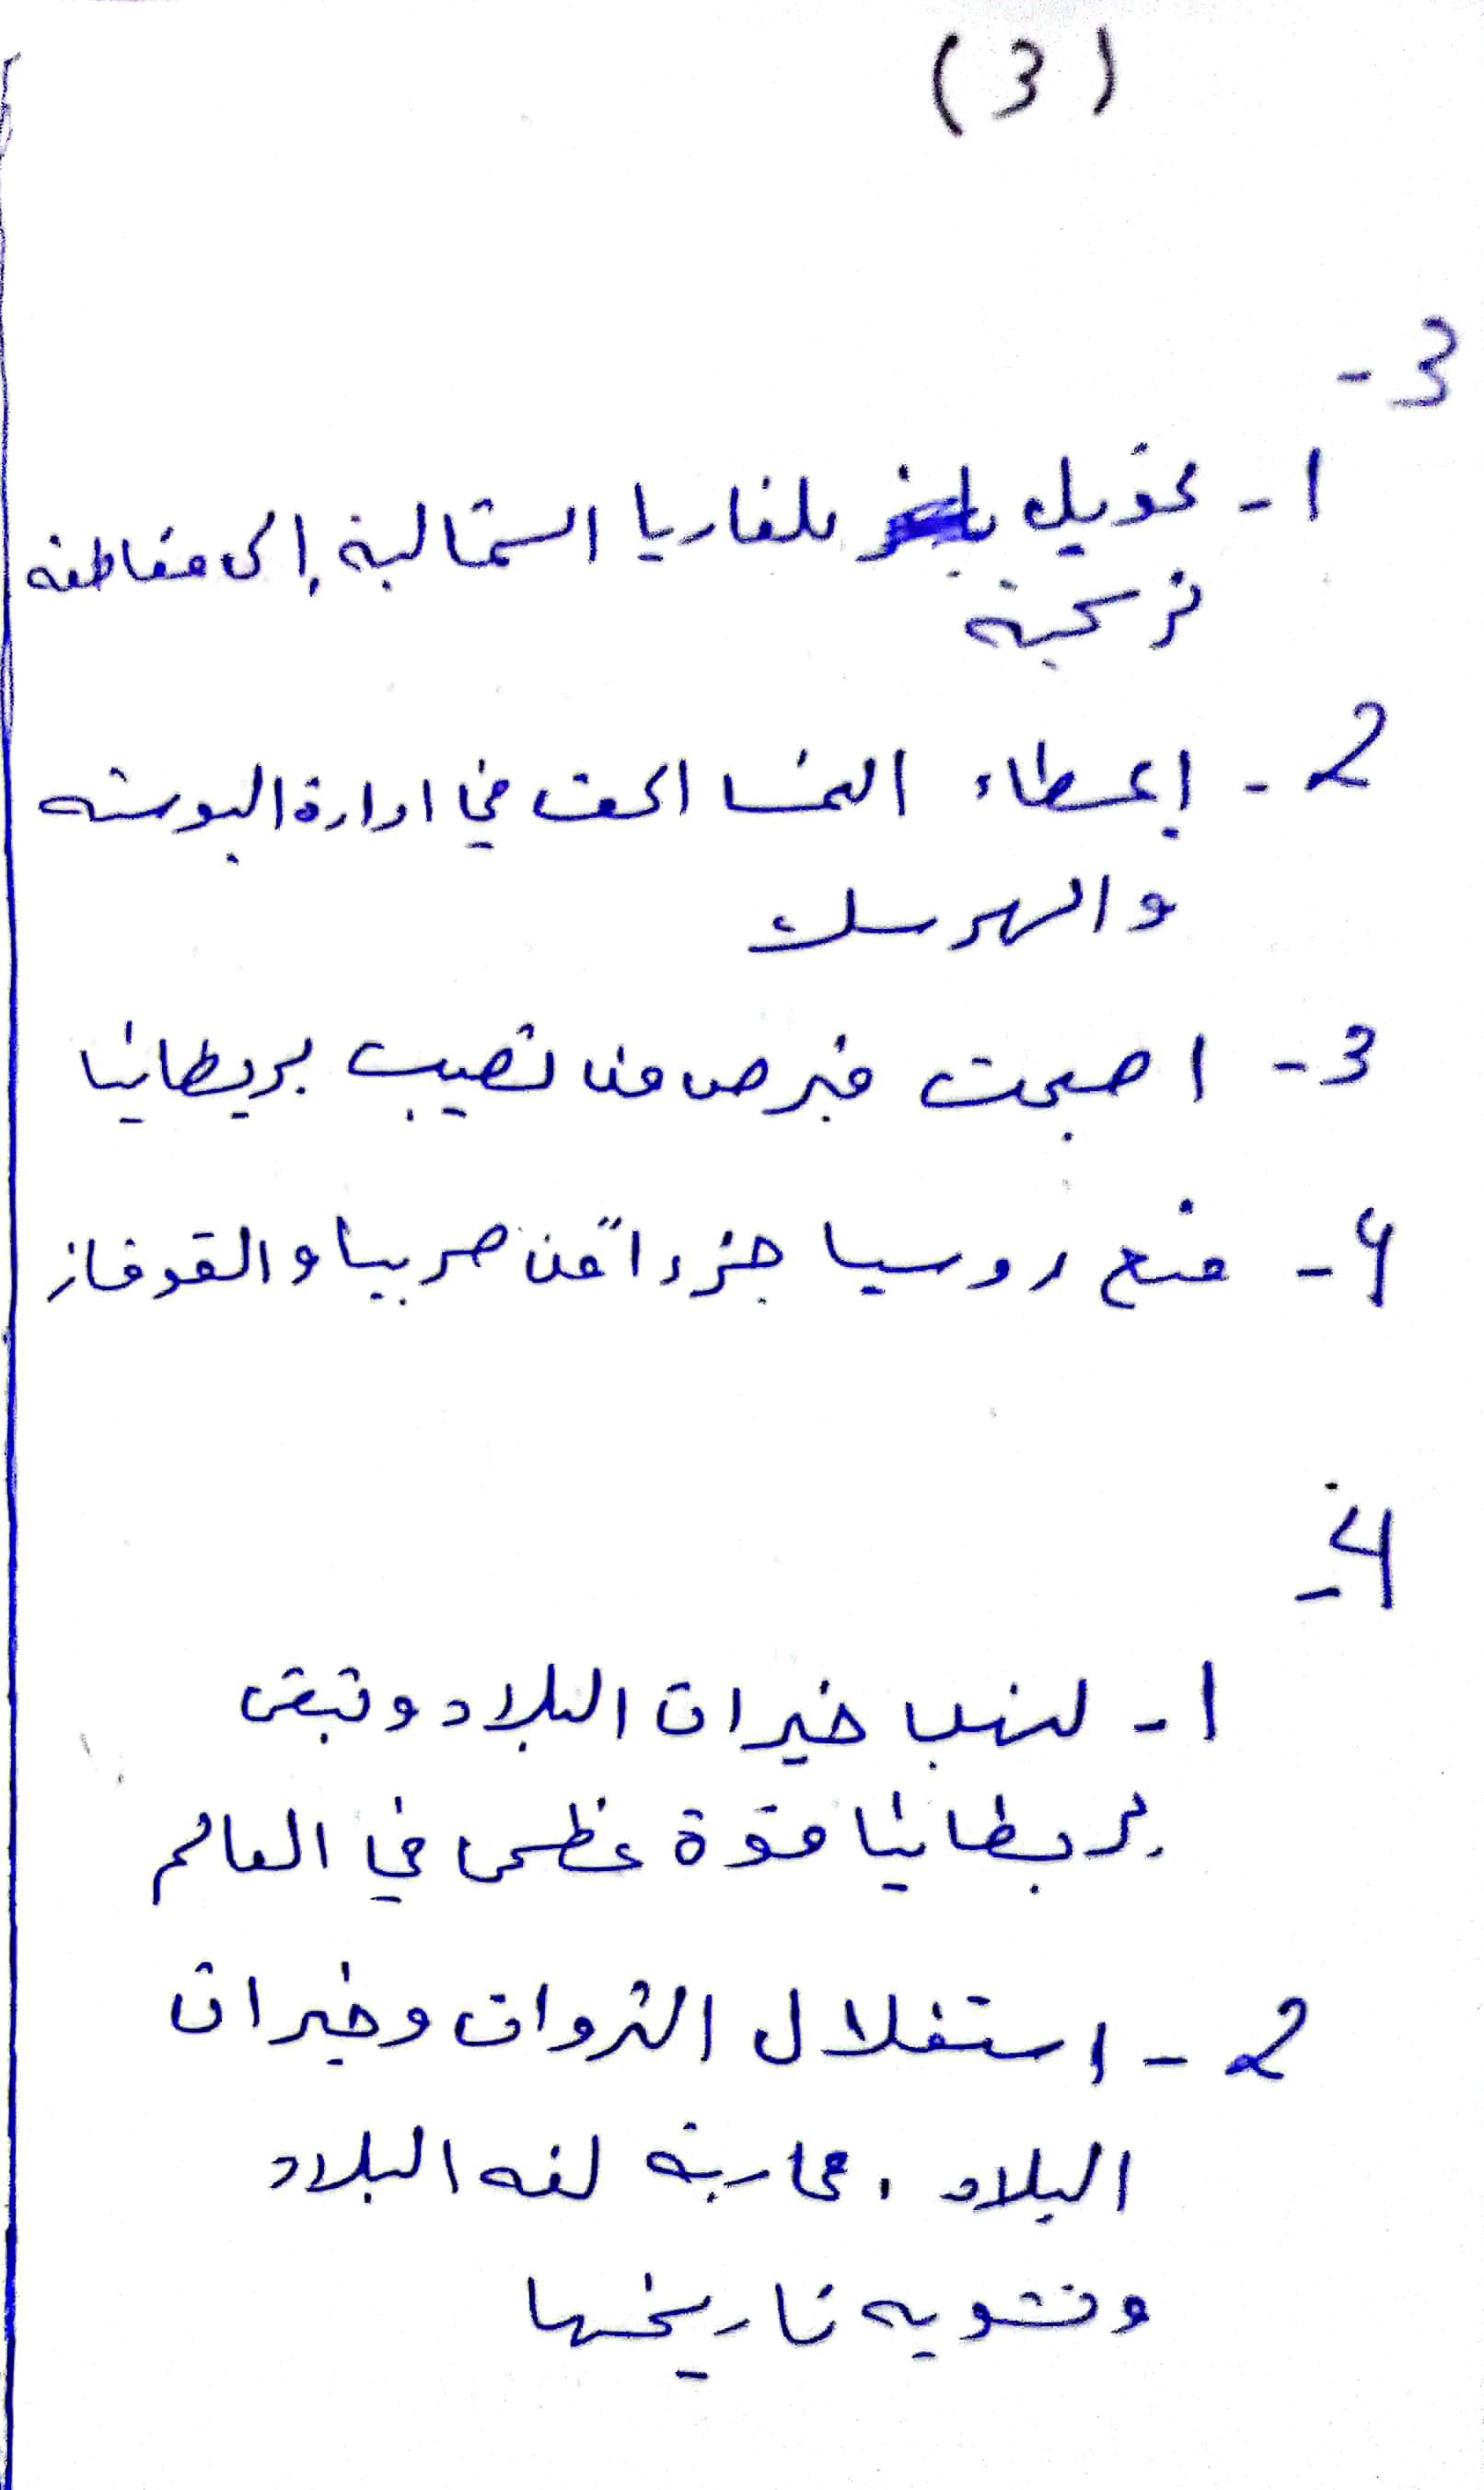 (3)
3-
1- تحويل بلغاريا الشمالية إلى مقاطعة
تركية
2- إعطاء النمسا الحق في ادارة البوسنه
والهرسك
3- اصبحت قبرص من نصيب بريطانيا
4- منح روسيا جزءاً من صربيا والقوقاز
4-
1- لنهب خيرات البلاد وتبقى
بريطانيا قوة عظمى في العالم
2- استغلال الثروات وخيرات
البلاد، محاربة لغه البلاد
وتشويه تاريخها